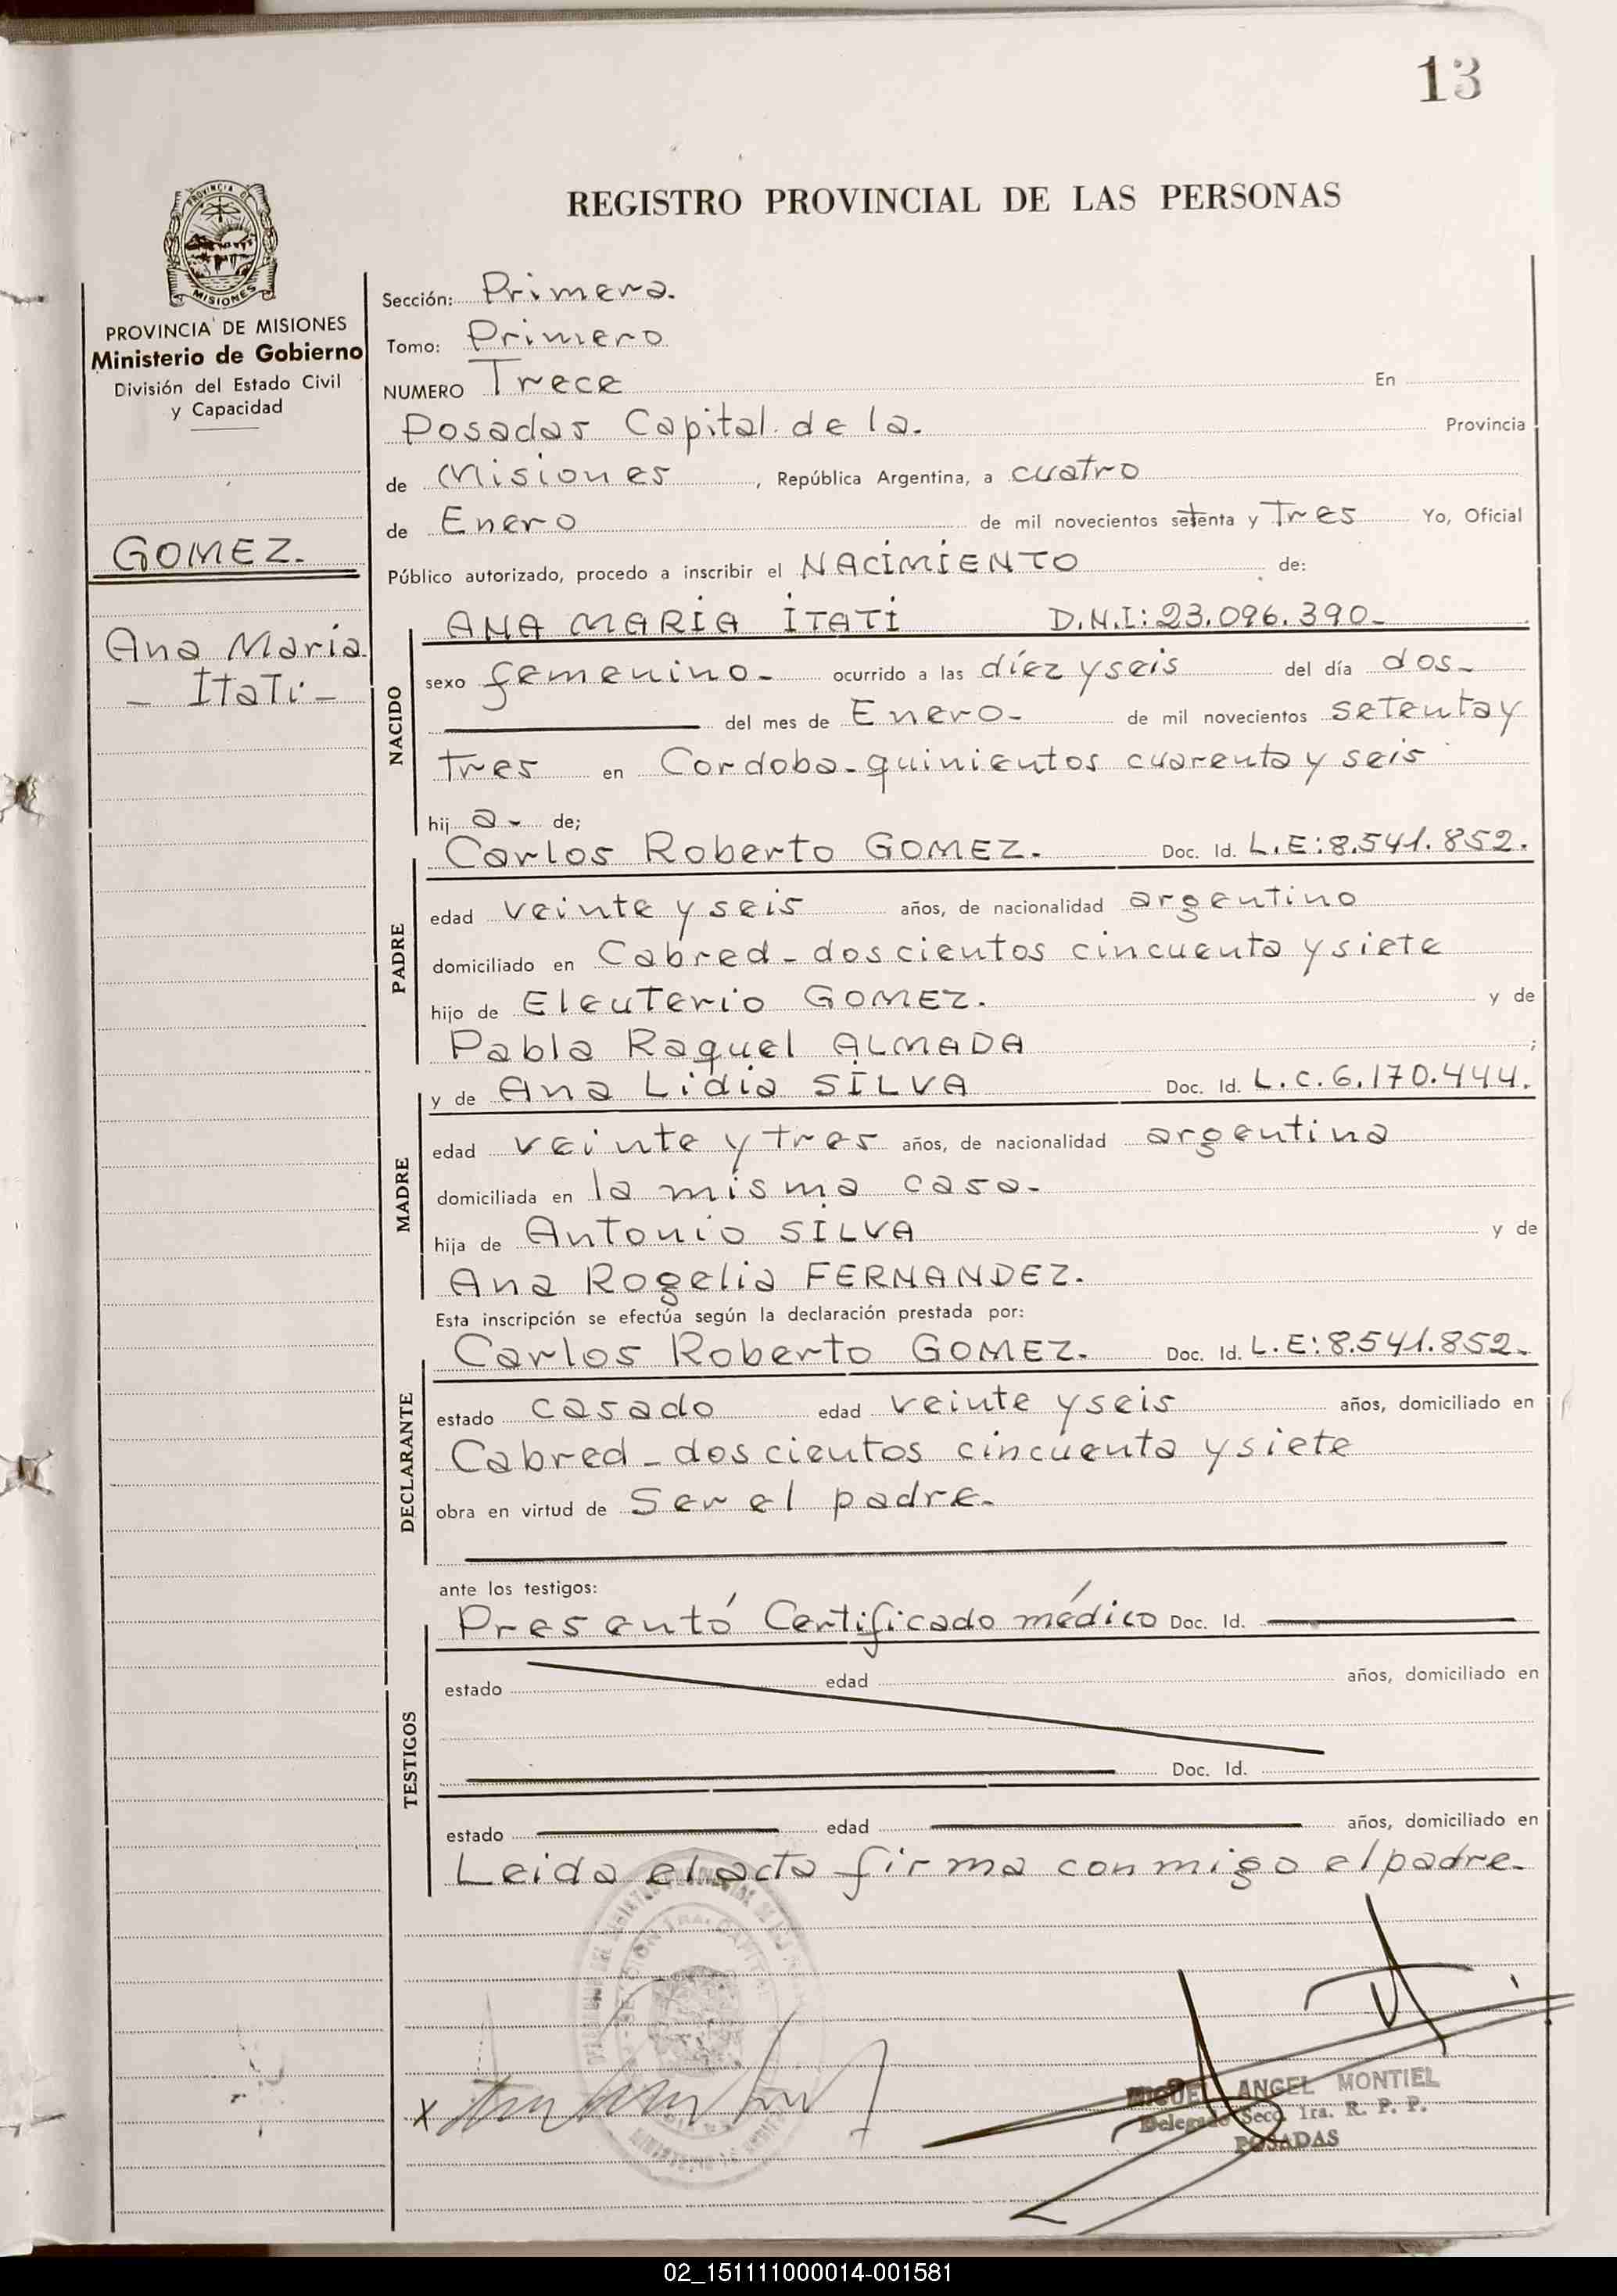 13
REGISTRO PROVINCIAL DE LAS PERSONAS
PROVINCIA DE
MISIONES
PROVINCIA DE MISIONES
Ministerio de Gobierno
División del Estado Civil
y Capacidad
GOMEZ.
Ana Maria
- Itati -
Sección: Primera.
Tomo: Primero
NUMERO Trece En
Posadas Capital de la. Provincia
de Misiones, República Argentina, a cuatro
de Enero de mil novecientos setenta y Tres Yo, Oficial
Público autorizado, procedo a inscribir el NACIMIENTO de:
NACIDO
ANA MARIA ITATI D.N.I: 23.096.390-
sexo femenino- ocurrido a las díez y seis del día dos-
del mes de Enero- de mil novecientos setenta y
tres en Cordoba-quinientos cuarenta y seis
hij a- de;
PADRE
Carlos Roberto GOMEZ. Doc. Id. L.E: 8.541.852.
edad veinte y seis años, de nacionalidad argentino
domiciliado en Cabred-doscientos cincuenta y siete
hijo de Eleuterio GOMEZ. y de
Pabla Raquel ALMADA ;
MADRE
y de Ana Lidia SILVA Doc. Id. L.C. 6.170.444.
edad veinte y tres años, de nacionalidad argentina
domiciliada en la misma casa-
hija de Antonio SILVA y de
Ana Rogelia FERNANDEZ.
Esta inscripción se efectúa según la declaración prestada por:
DECLARANTE
Carlos Roberto GOMEZ. Doc. Id. L.E: 8.541.852-
estado casado edad veinte y seis años, domiciliado en
Cabred-doscientos cincuenta y siete
obra en virtud de Ser el padre-
ante los testigos:
TESTIGOS
Presentó Certificado médico Doc. Id.
estado edad años, domiciliado en
Doc. Id.
estado edad años, domiciliado en
Leida el acta firma conmigo el padre-
x
MIGUEL ANGEL MONTIEL
Delegado Secc. 1ra. R. P. P.
POSADAS
02_151111000014-001581